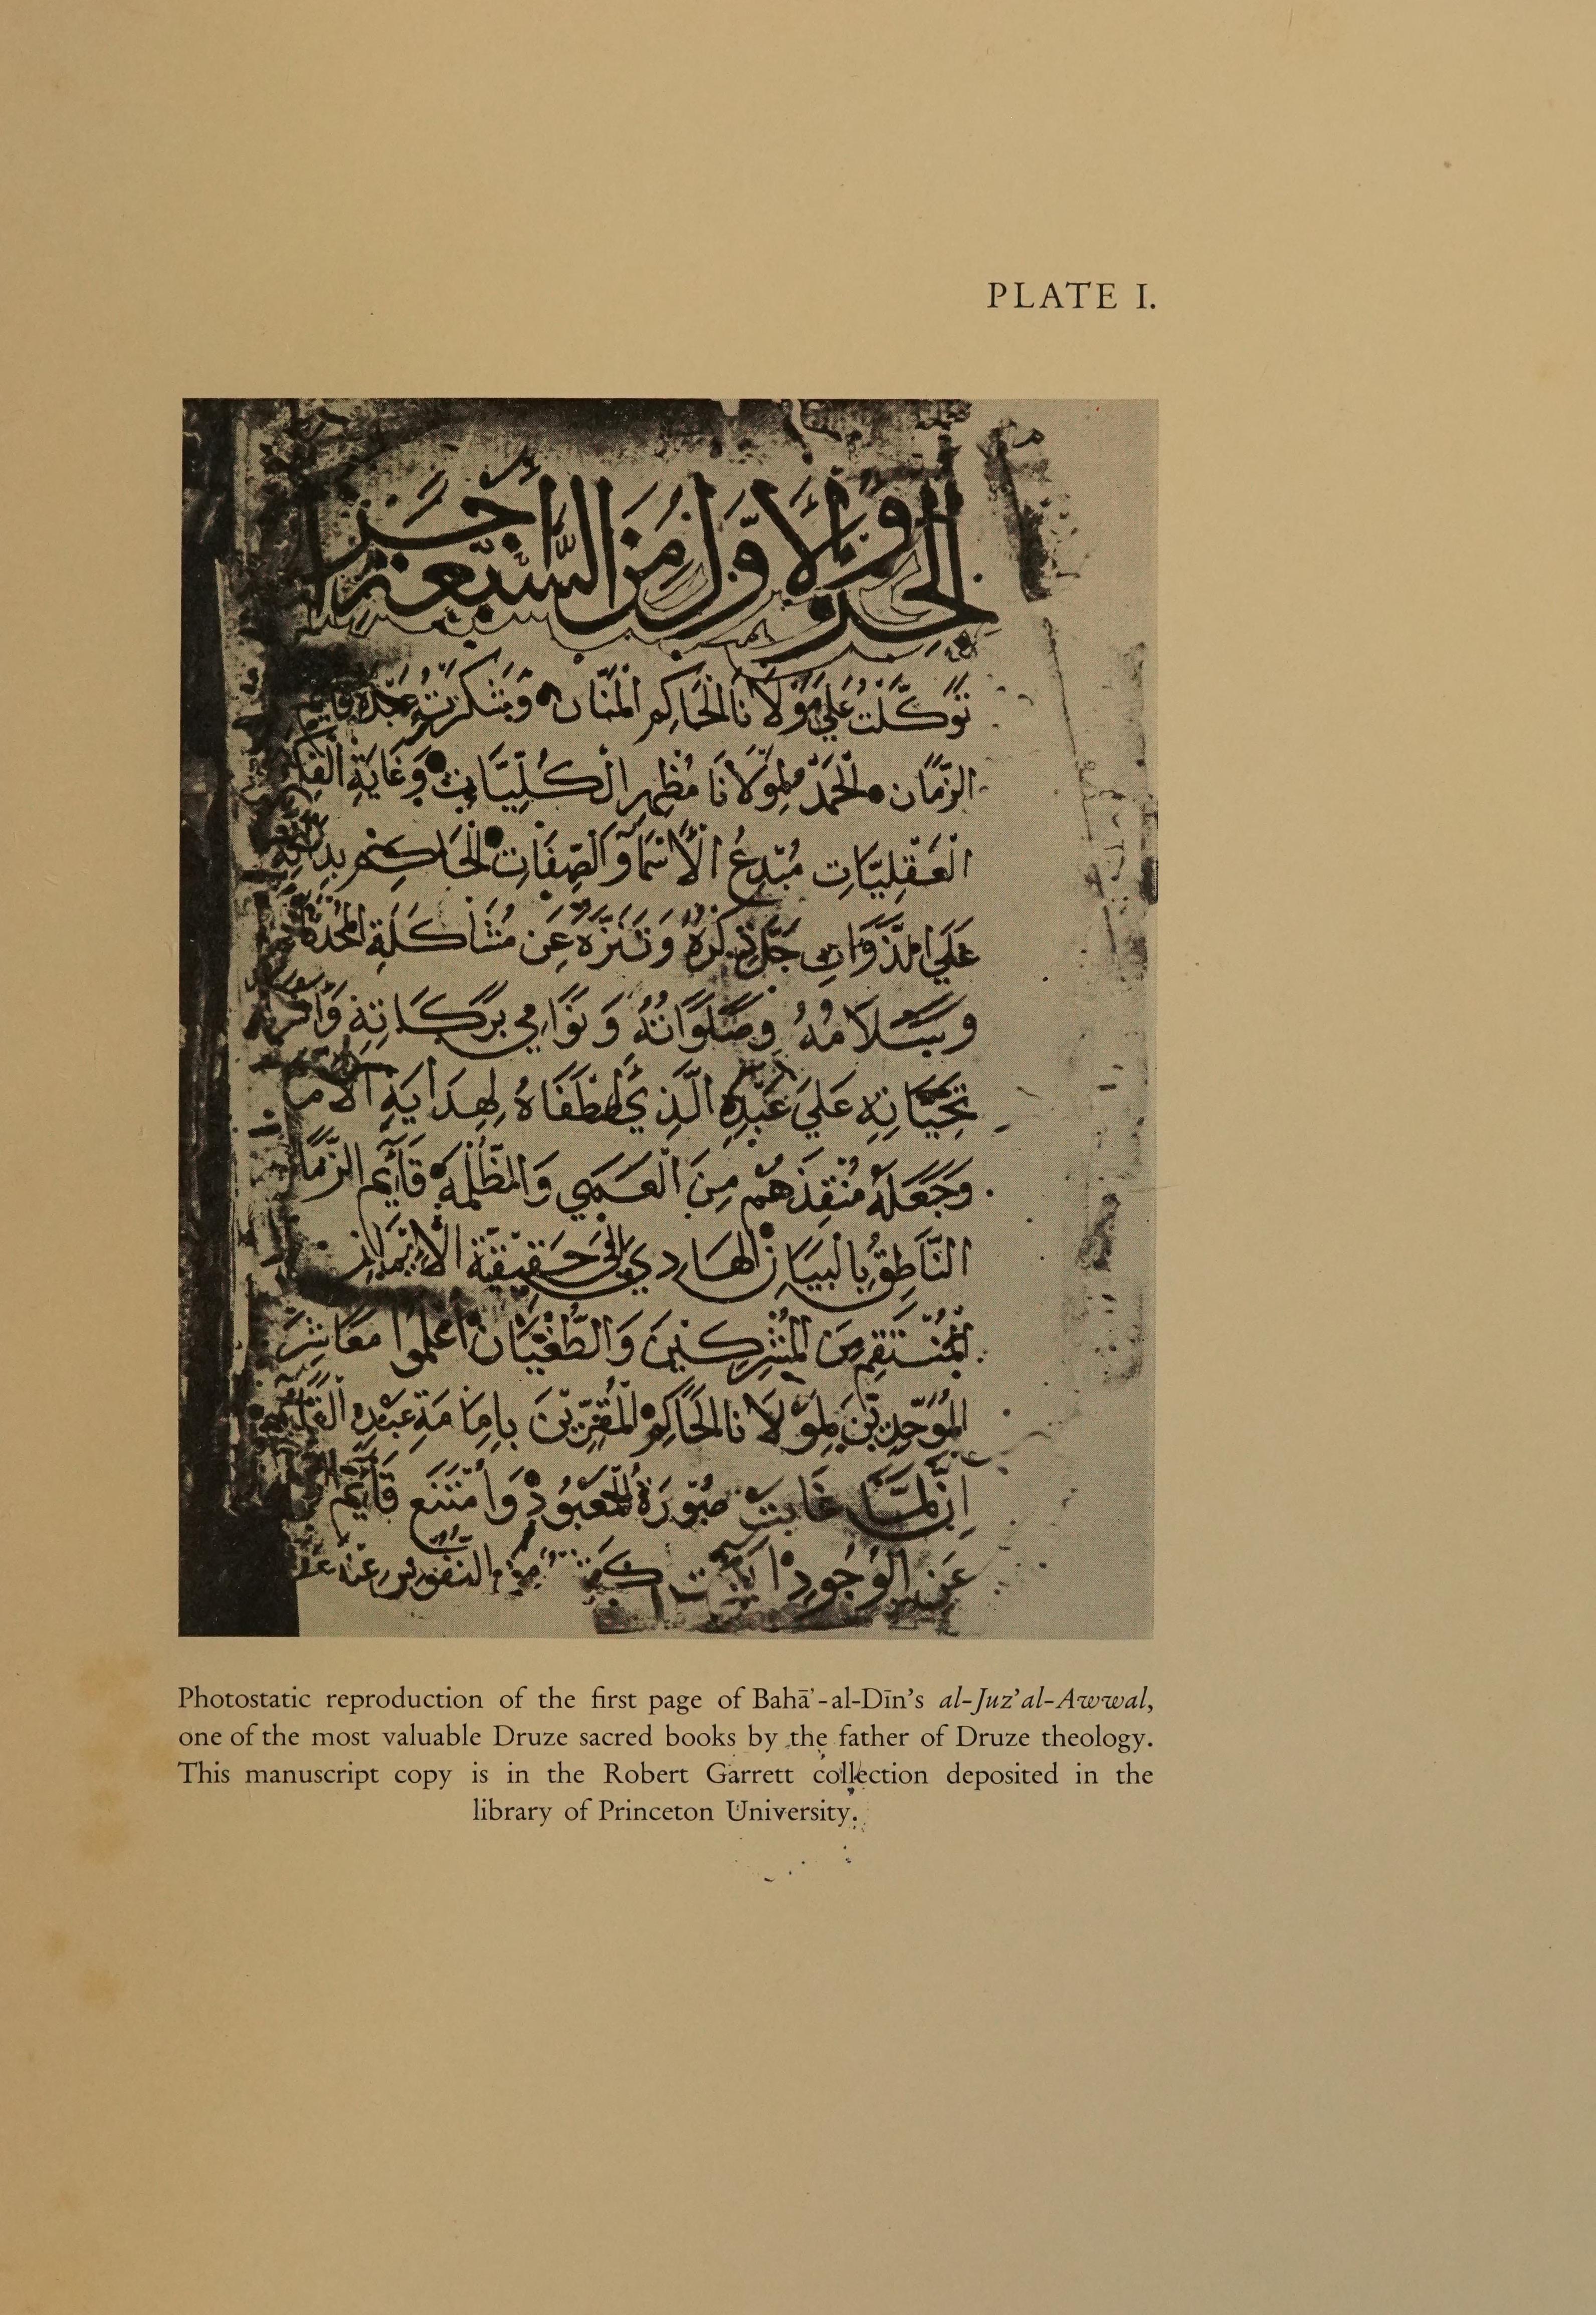 PLATE I.
الجزو الاول من السبعة أجزا
تَوَكَّلْتُ عَلَي مَوْلَانَا الْحَاكِم الْمَنَّان وَشَكَرْتُ عَبْدَهُ قَايِم
الزَّمَان الْحَمْدُ لِمَوْلَانَا مُظْهِر الْكُلِّيَّاتِ وَغَايَةِ
الْعَقْلِيَّاتِ مُبْدِعُ الْأَسْمَآ وَالصِّفَاتِ الْحَاكِم بِذَاتِهِ
عَلَي الذَّوَاتِ جَلَّ ذِكْرُهُ وَتَنَزَّهَ عَنْ مُشَاكَلَةِ
وَسَلَامُهُ وَصَلَوَاتُهُ وَنَوَامِي بَرَكَاتِهِ
تَحِيَّاتِهِ عَلَي عَبْدِهِ الَّذِي اصْطَفَاهُ لِهِدَايَةِ
وَجَعَلَهُ مُنْقِذَهُمْ مِنَ الْعَمَي وَالْمَظْلَمَةِ قَآيِم الزَّمَان
النَّاطِقُ بِالْبَيَانِ الْهَادِي إِلَى حَقِيْقِيَّة الْإِيْمَانِ
الْمُنْتَقِم مِنَ الْمُشْرِكِيْنَ وَالطُّغْيَان اعلموا مَعَاشِرَ
الْمُوَحِّدِيْنَ لِمَوْلَانَا الْحَاكِم الْمُقِرِّيْنَ بِإِمَامَةِ عَبْدِهِ الْقَايِم
اِنَّ لَمَّا غَابَتْ صُوْرَةُ الْمَعْبُوْد وَامْتَنَع قَآيِم
عَنِ الْوُجُودِ النفوس عَنْهُ
Photostatic reproduction of the first page of Bahā'-al-Dīn's al-Juz' al-Awwal,
one of the most valuable Druze sacred books by the father of Druze theology.
This manuscript copy is in the Robert Garrett collection deposited in the
library of Princeton University.